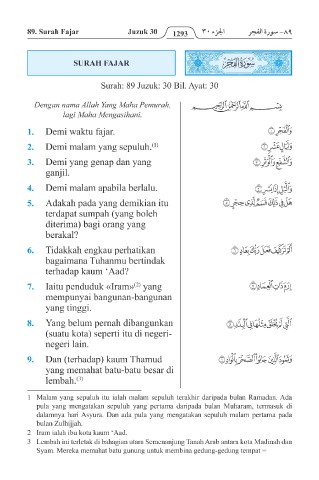 89. Surah Fajar Juzuk 30 1293 الجزء ٣٠ ٨٩- سورة الفجر
SURAH FAJAR سُورَةُ الفَجْرِ
Surah: 89 Juzuk: 30 Bil. Ayat: 30
Dengan nama Allah Yang Maha Pemurah,
lagi Maha Mengasihani.
بِسْمِ اللَّهِ الرَّحْمَٰنِ الرَّحِيمِ
1. Demi waktu fajar.
وَالْفَجْرِ ①
2. Demi malam yang sepuluh.(1)
وَلَيَالٍ عَشْرٍ ②
3. Demi yang genap dan yang
ganjil.
وَالشَّفْعِ وَالْوَتْرِ ③
4. Demi malam apabila berlalu.
وَاللَّيْلِ إِذَا يَسْرِ ④
5. Adakah pada yang demikian itu
terdapat sumpah (yang boleh
diterima) bagi orang yang
berakal?
هَلْ فِي ذَٰلِكَ قَسَمٌ لِّذِي حِجْرٍ ⑤
6. Tidakkah engkau perhatikan
bagaimana Tuhanmu bertindak
terhadap kaum ‘Aad?
أَلَمْ تَرَ كَيْفَ فَعَلَ رَبُّكَ بِعَادٍ ⑥
7. Iaitu penduduk «Iram»(2) yang
mempunyai bangunan-bangunan
yang tinggi.
إِرَمَ ذَاتِ الْعِمَادِ ⑦
8. Yang belum pernah dibangunkan
(suatu kota) seperti itu di negeri-
negeri lain.
الَّتِي لَمْ يُخْلَقْ مِثْلُهَا فِي الْبِلَادِ ⑧
9. Dan (terhadap) kaum Thamud
yang memahat batu-batu besar di
lembah.(3)
وَثَمُودَ الَّذِينَ جَابُوا الصَّخْرَ بِالْوَادِ ⑨
1 Malam yang sepuluh itu ialah malam sepuluh terakhir daripada bulan Ramadan. Ada
pula yang mengatakan sepuluh yang pertama daripada bulan Muharam, termasuk di
dalamnya hari Asyura. Dan ada pula yang mengatakan sepuluh malam pertama pada
bulan Zulhijjah.
2 Iram ialah ibu kota kaum ‘Aad.
3 Lembah ini terletak di bahagian utara Semenanjung Tanah Arab antara kota Madinah dan
Syam. Mereka memahat batu gunung untuk membina gedung-gedung tempat =